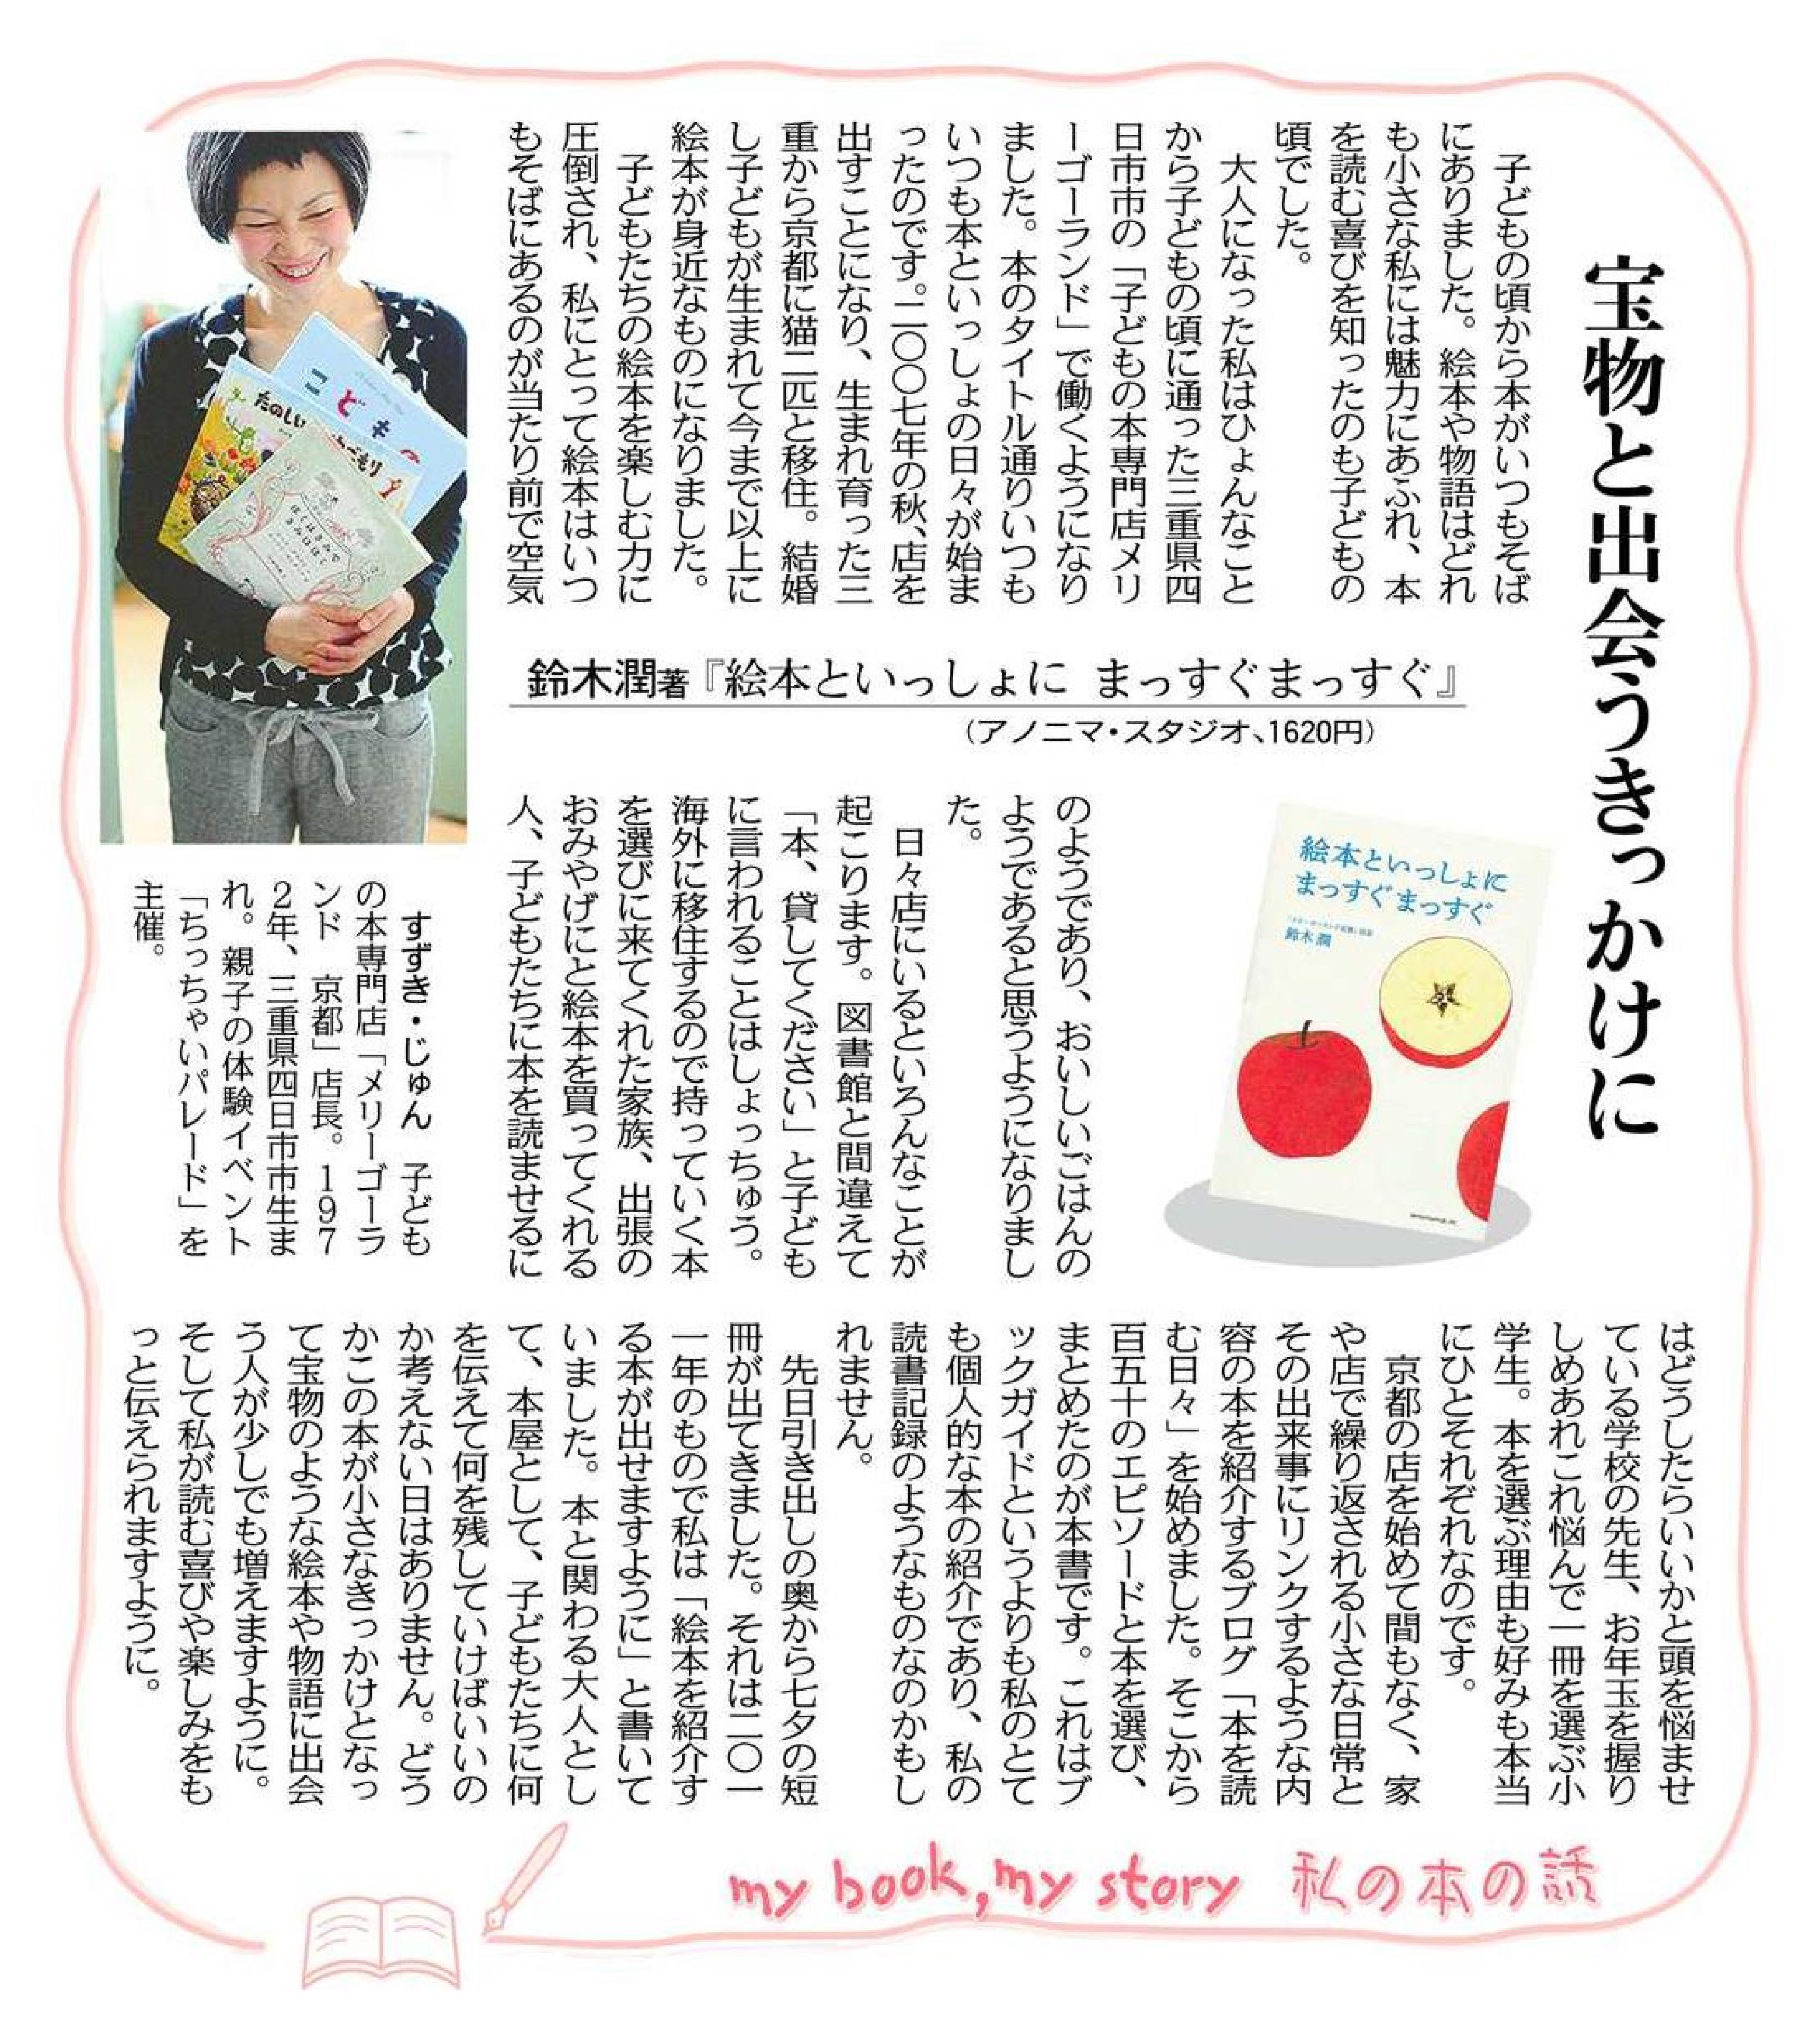 宝物と出会うきっかけに
子どもの頃から本がいつもそば
にありました。絵本や物語はどれ
も小さな私には魅力にあふれ、本
を読む喜びを知ったのも子どもの
頃でした。
大人になった私はひょんなこと
から子どもの頃に通った三重県四
日市市の「子どもの本専門店メリ
ーゴーランド」で働くようになり
ました。本のタイトル通りいつも
いつも本といっしょの日々が始ま
ったのです。二〇〇七年の秋、店を
出すことになり、生まれ育った三
重から京都に猫二匹と移住。結婚
し子どもが生まれて今まで以上に
絵本が身近なものになりました。
子どもたちの絵本を楽しむ力に
圧倒され、私にとって絵本はいつ
もそばにあるのが当たり前で空気
鈴木潤著『絵本といっしょに まっすぐまっすぐ』
（アノニマ・スタジオ、1620円）
のようであり、おいしいごはんの
ようであると思うようになりまし
た。
日々店にいるといろんなことが
起こります。図書館と間違えて
「本、貸してください」と子ども
に言われることはしょっちゅう。
海外に移住するので持っていく本
を選びに来てくれた家族、出張の
おみやげにと絵本を買ってくれる
人、子どもたちに本を読ませるに
はどうしたらいいかと頭を悩ませ
ている学校の先生、お年玉を握り
しめあれこれ悩んで一冊を選ぶ小
学生。本を選ぶ理由も好みも本当
にひとそれぞれなのです。
京都の店を始めて間もなく、家
や店で繰り返される小さな日常と
その出来事にリンクするような内
容の本を紹介するブログ「本を読
む日々」を始めました。そこから
百五十のエピソードと本を選び、
まとめたのが本書です。これはブ
ックガイドというよりも私のとて
も個人的な本の紹介であり、私の
読書記録のようなものなのかもし
れません。
先日引き出しの奥から七夕の短
冊が出てきました。それは二〇一
一年のもので私は「絵本を紹介す
る本が出せますように」と書いて
いました。本と関わる大人とし
て、本屋として、子どもたちに何
を伝えて何を残していけばいいの
か考えない日はありません。どう
かこの本が小さなきっかけとなっ
て宝物のような絵本や物語に出会
う人が少しでも増えますように。
そして私が読む喜びや楽しみをも
っと伝えられますように。
すずき・じゅん　子ども
の本専門店「メリーゴーラ
ンド　京都」店長。197
2年、三重県四日市市生ま
れ。親子の体験イベント
「ちっちゃいパレード」を
主催。
絵本といっしょに
まっすぐまっすぐ
鈴木潤
こどもの
たのしい
ぼくはきみで
きみはぼく
my book, my story 私の本の話